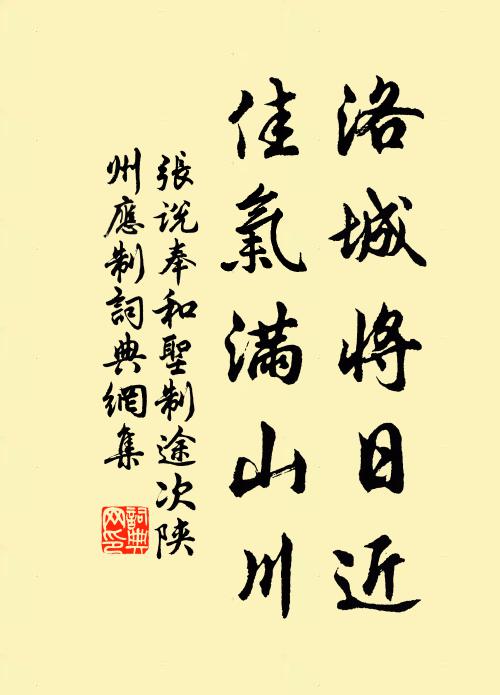 洛城將日近
佳氣滿山川
張說奉和聖制途次陝
州應制詞典網集
詞典
网印